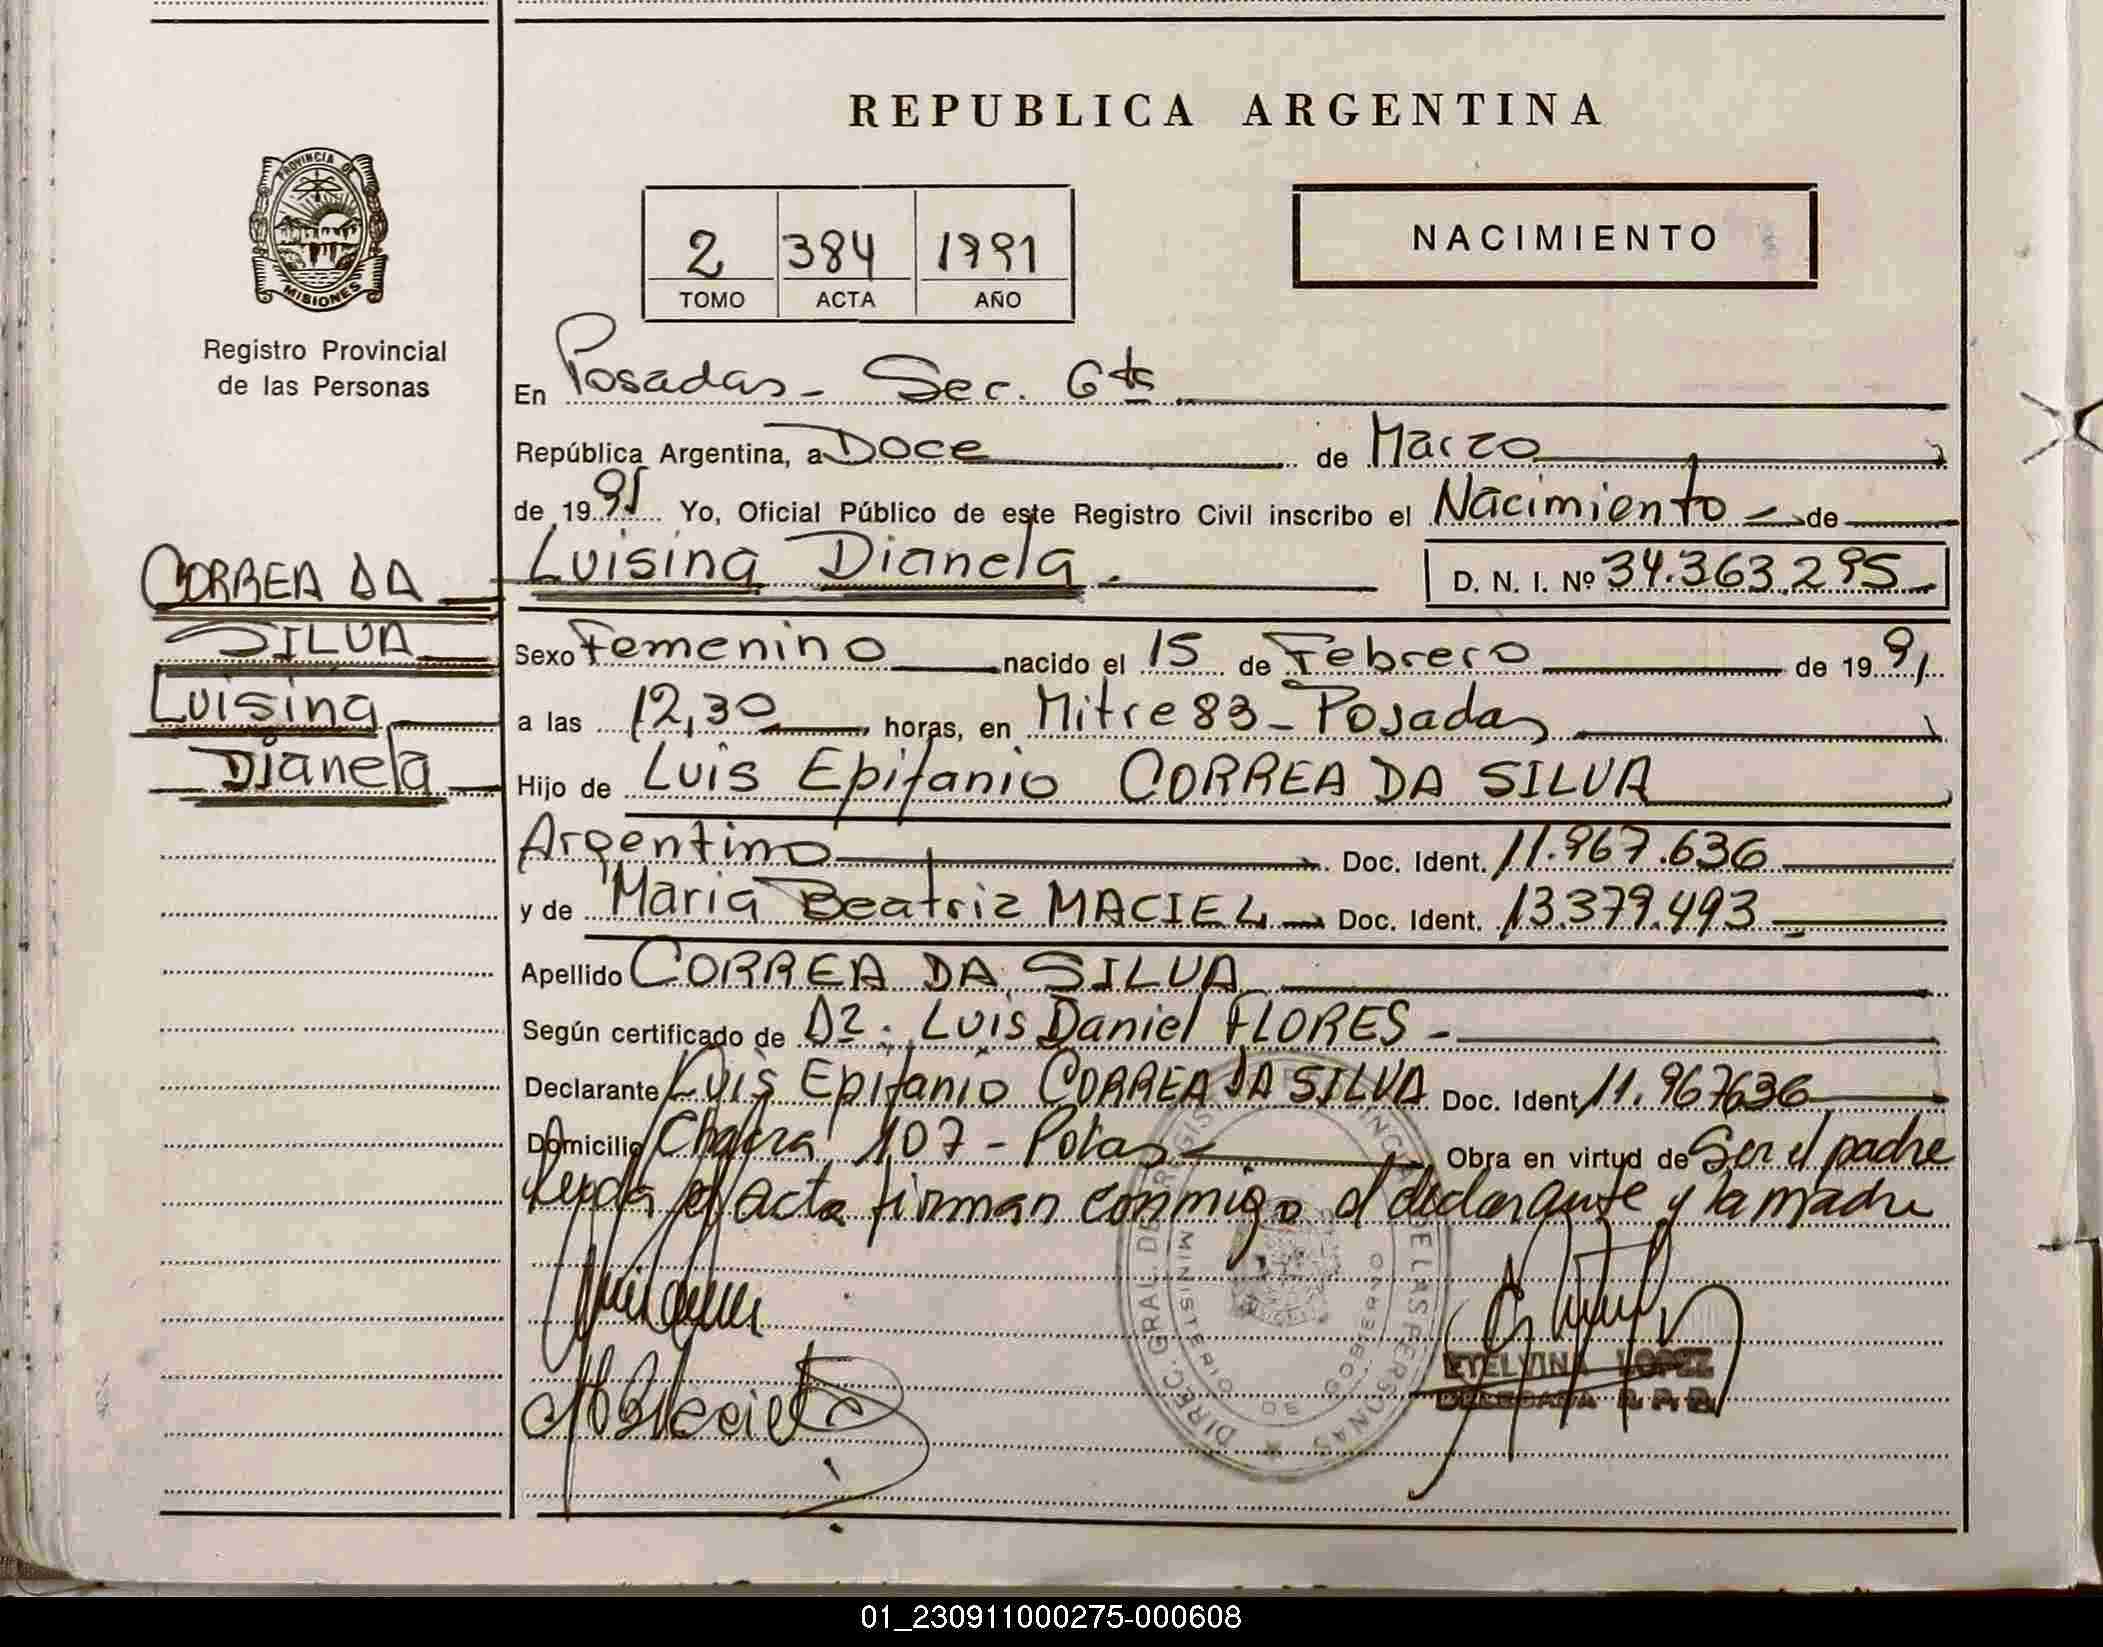 REPUBLICA ARGENTINA
PROVINCIA DE
MISIONES
Registro Provincial
de las Personas
2 384 1991
TOMO ACTA AÑO
NACIMIENTO
En Posadas - Sec. 6ta
República Argentina, a Doce de Marzo
de 1991 Yo, Oficial Público de este Registro Civil inscribo el Nacimiento de
Luisina Dianela. D. N. I. Nº 34.363.295
CORREA DA
SILVA
Luisina
Dianela
Sexo Femenino nacido el 15 de Febrero de 1991
a las 12,30 horas, en Mitre 83 - Posadas
Hijo de Luis Epifanio CORREA DA SILVA
Argentino Doc. Ident. 11.967.636
y de Maria Beatriz MACIEL Doc. Ident. 13.379.493
Apellido CORREA DA SILVA
Según certificado de Dr. Luis Daniel FLORES -
Declarante Luis Epifanio CORREA DA SILVA Doc. Ident 11.967636
Domicilio Chacra 107 - Pdas Obra en virtud de Ser el padre
Leida el acta firman conmigo el declarante y la madre
DIREC. GRAL. DE REGIS DE LAS PERSONAS
MINISTERIO DE GOBIERNO
ETELVINA LOPEZ
DELEGADA R. P. P.
01_230911000275-000608